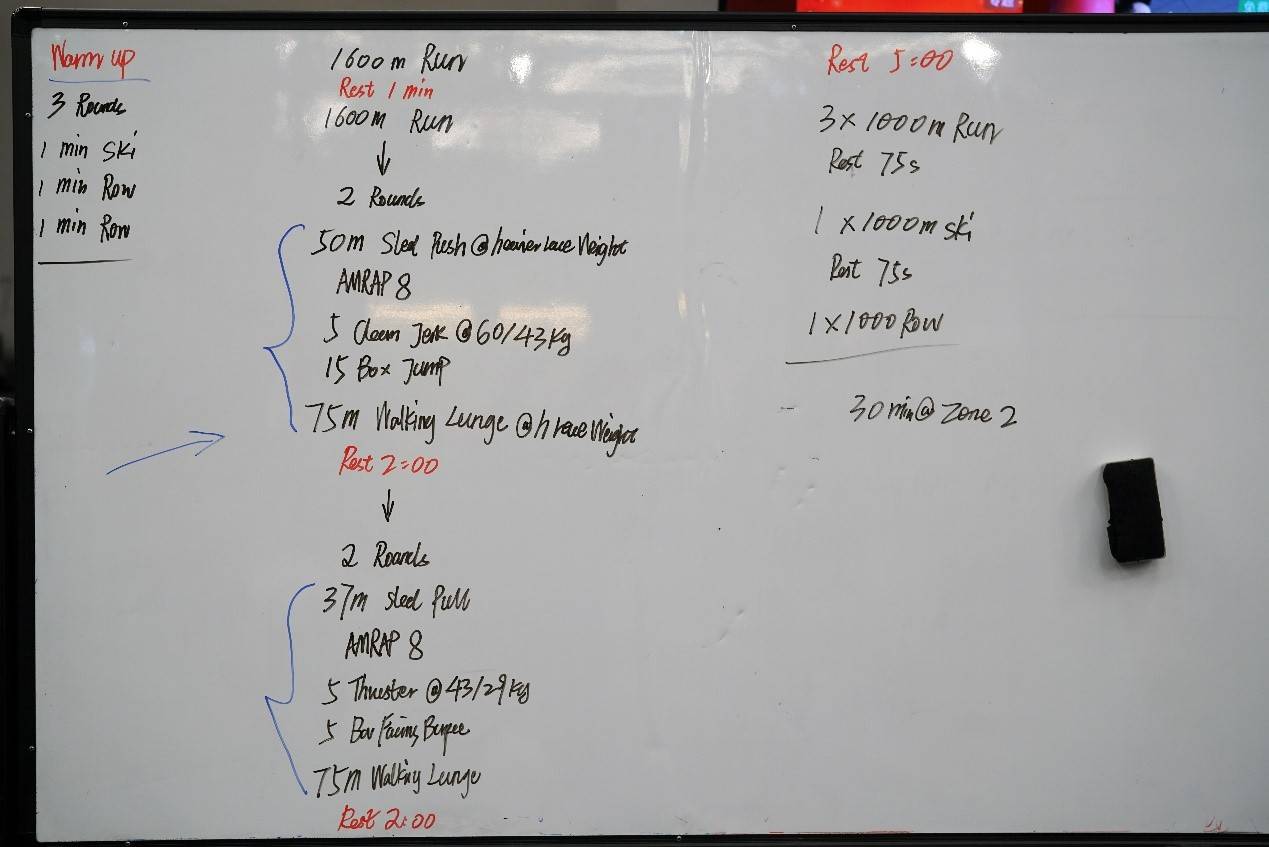 Warm up
3 Rounds
1 min Ski
1 min Row
1 min Row
1600m Run
Rest 1 min
1600m Run
↓
2 Rounds
50m Sled Push @ Weight
AMRAP 8
5 Clean Jerk @ 60/43kg
15 Box Jump
75m Walking Lunge @ Weight
Rest 2:00
↓
2 Rounds
37m Sled Pull
AMRAP 8
5 Thruster @ 43/29kg
5 Bar Facing Burpee
75m Walking Lunge
Rest 2:00
Rest 5:00
3 x 1000m Run
Rest 75s
1 x 1000m Ski
Rest 75s
1 x 1000 Row
30 min @ Zone 2